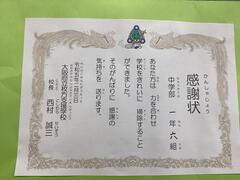 かんしゃじょう
感謝状
中学部　一年　六組
あなた方は　力を合わせ
学校をきれいに　掃除すること
ができました。
そのがんばりに　感謝の
気持ちを　送ります。
大阪府立枚方支援学校
校長　西村　誠三